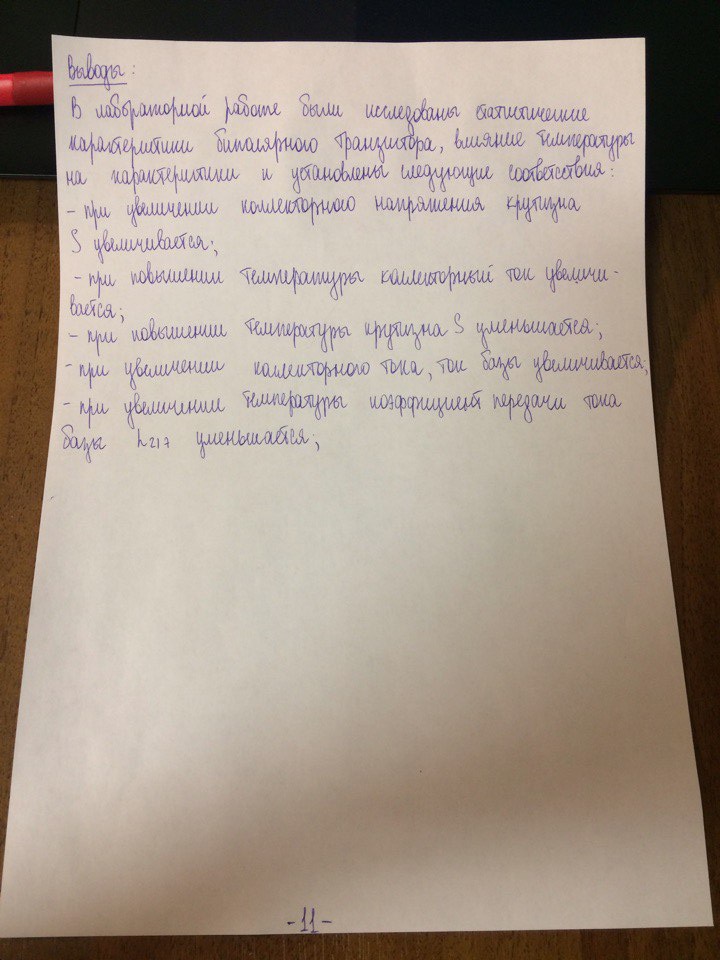 Выводы:
В лабораторной работе были исследованы статистические
характеристики биполярного транзистора, влияние температуры
на характеристики и установлены следующие соответствия:
- при увеличении коллекторного напряжения крутизна
S увеличивается;
- при повышении температуры коллекторный ток увеличи-
вается;
- при повышении температуры крутизна S уменьшается;
- при увеличении коллекторного тока, ток базы увеличивается;
- при увеличении температуры коэффициент передачи тока
базы h21э уменьшается;
-11-